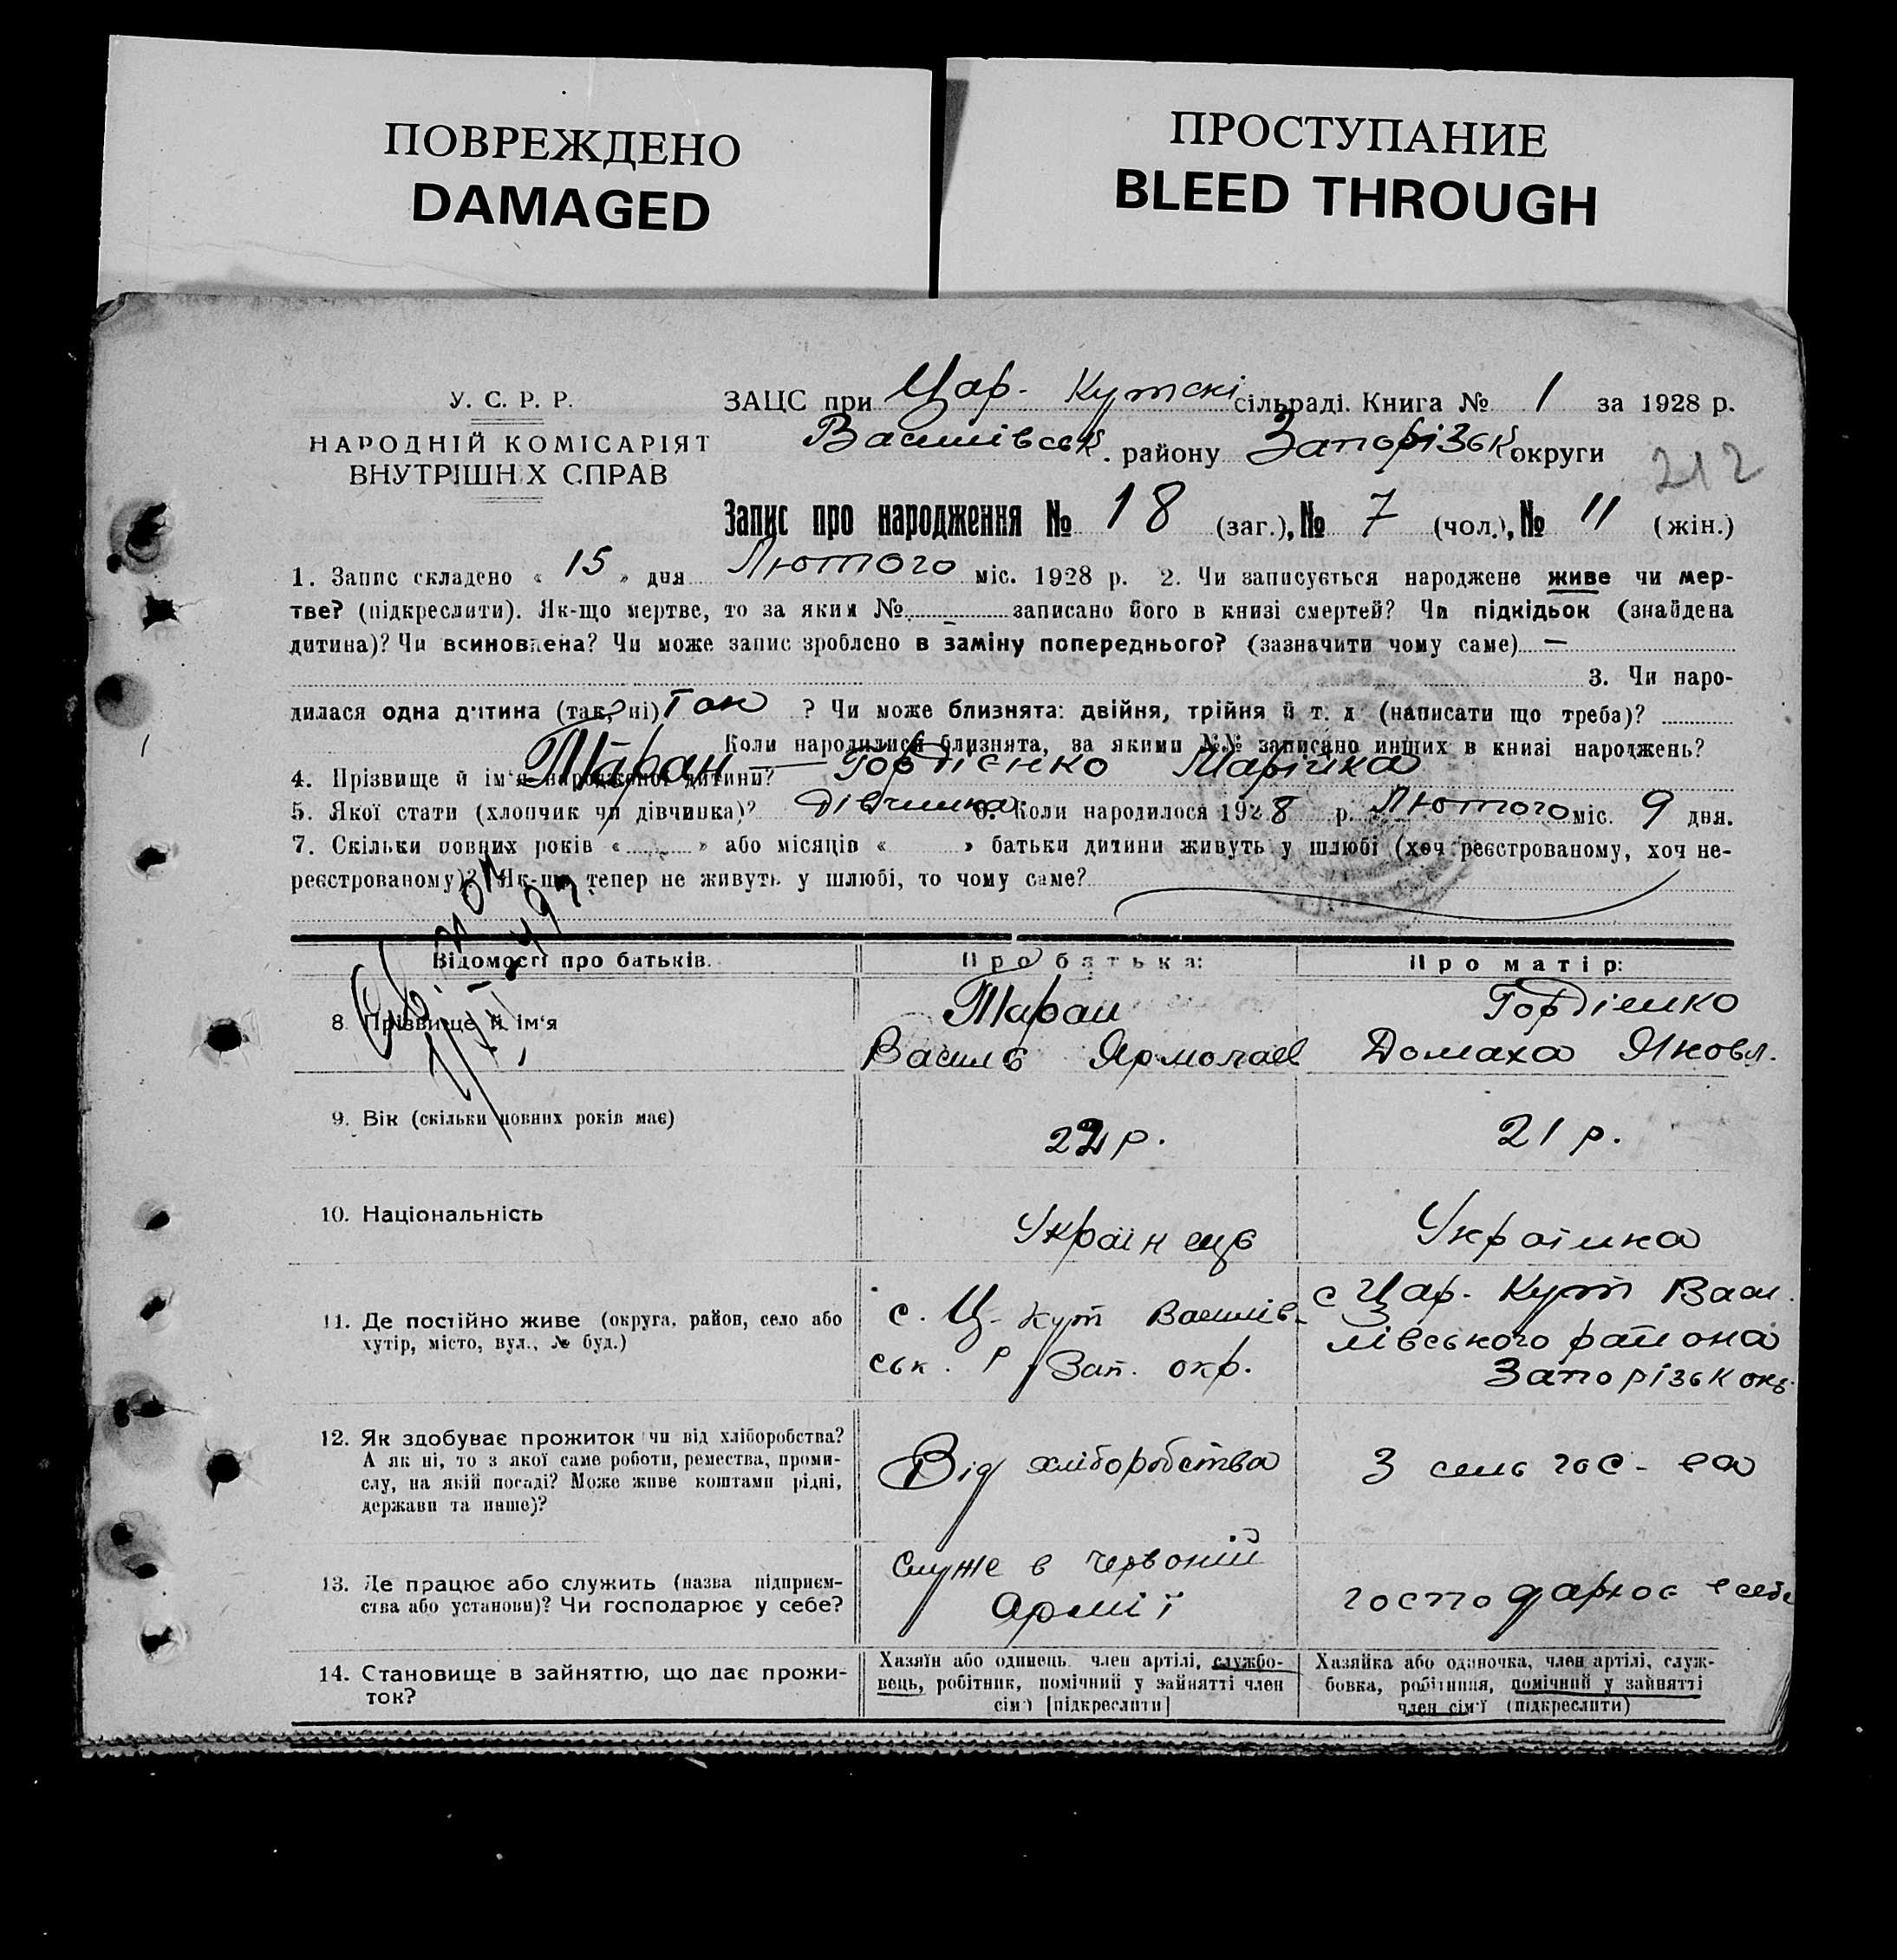 ПОВРЕЖДЕНО
DAMAGED
ПРОСТУПАНИЕ
BLEED THROUGH
У. С. Р. Р.
НАРОДНІЙ КОМІСАРІЯТ
ВНУТРІШНІХ СПРАВ
ЗАЦС при Цар. Кутскі сільраді. Книга № 1 за 1928 р.
Василівськ. району Запорізьк округи
212
Запис про народження № 18 (заг.), № 7 (чол.), № 11 (жін.)
1. Запис складено « 15 » дня Лютого міс. 1928 р. 2. Чи записується народжене живе чи мер-
тве? (підкреслити). Як-що мертве, то за яким № записано його в книзі смертей? Чи підкідьок (знайдена
дитина)? Чи всиновлена? Чи може запис зроблено в заміну попереднього? (зазначити чому саме) —
3. Чи наро-
дилася одна дитина (так, ні) Так ? Чи може близнята: двійня, трійня й т. д (написати що треба)?
Коли народилися близнята, за якими №№ записано инших в книзі народжень?
4. Прізвище й ім'я народженої дитини? Таран — Гордієнко Марійка
5. Якої стати (хлопчик чи дівчинка)? Дівчинка 6. Коли народилося 1928 р. Лютого міс. 9 дня.
7. Скільки повних років « » або місяців « » батьки дитини живуть у шлюбі (хоч реєстрованому, хоч не-
реєстрованому)? Як-що тепер не живуть у шлюбі, то чому саме?
Відомості про батьків. Про батька: Про матір:
8. Прізвище й ім'я
Таран
Василь Ярмолаев
Гордіенко
Домаха Яковл.
9. Вік (скільки повних років має) 22 р. 21 р.
10. Національність Українець Українка
11. Де постійно живе (округа, район, село або
хутір, місто, вул., № буд.)
с. Ц- Кут Василів-
ськ. р Зап. окр.
с Цар. Кут Васи.
лівського района
Запорізьк окр.
12. Як здобуває прожиток чи від хліборобства?
А як ні, то з якої саме роботи, ремества, проми-
слу, на якій посаді? Може живе коштами рідні,
держави та инше)?
Від хліборобства
З сель гос-ва
13. Де працює або служить (назва підприєм-
ства або установи)? Чи господарює у себе?
Служе в червоній
Армії
господарює в себе
14. Становище в зайняттю, що дає прожи-
ток?
Хазяїн або одинець, член артілі, службо-
вець, робітник, помічний у зайнятті член
сім'ї [підкреслити]
Хазяйка або одиночка, член артілі, служ-
бовка, робітниця, помічний у зайнятті
член сім'ї (підкреслити)